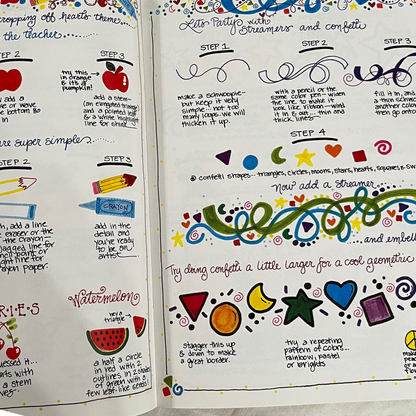 cropping off hearts theme...
the teacher.....
STEP 2
STEP 3
try this →
in orange
& its a
pumpkin!
add a
or wave
bottom &
in
add a stem-
(an elongated triangle)
and a pointed leaf
& a white highlight
line for shine
are super simple 2....
STEP 2
STEP 3
CRAYON
add a line
eraser or the
the crayon.
jagged line for
line for
crayon paper.
add in the
detail and
you're ready
to be an
artist
RIES
Watermelon
hey a
triangle
with
a stem
a half a circle
in red with 2
outlines in 2 shades
of green with a
few leaf-like seeds!
Let's Party? with
Streamers and confetti
STEP 1
STEP 2
STEP 3
make a schwoopie-
but keep it very
simple... not too
many loops. We will
thicken it up.
with a pencil or the
same color pen- widen
the line to make it
look like ribbon - widen
it in & out... thin and
thick lines
fill it in, and
a thin schw
another color
then go onto
STEP 4
@ confetti shapes... triangles, circles, moons, stars, hearts, squares & sw
Now add a Streamer...
...and embell
Try doing confetti a little larger for a cool geometric
stagger this up
& down to make
a great border.
try a repeating
pattern of colors...
rainbow, pastel
or brights
make